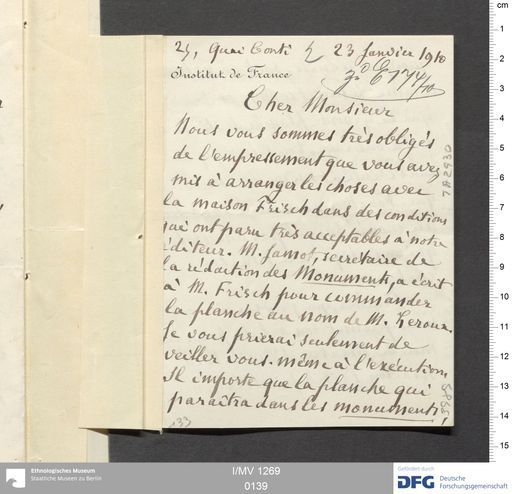 25, Quai Conti 23 Janvier 1910
Institut de France
E 174/10
Cher Monsieur
Nous vous sommes très obligés
de l'empressement que vous avez
mis à arranger les choses avec
la maison Frisch dans des conditions
qui ont paru très acceptables à notre
éditeur. M. Jamot, secrétaire de
la rédaction des Monuments, a écrit
à M. Frisch pour commander
la planche au nom de M. Leroux.
Je vous prierai seulement de
veiller vous-même à l'exécution.
Il importe que la planche qui
paraîtra dans les monuments,
133
cm
1
2
3
4
5
6
7
8
9
10
11
12
13
14
15
Ethnologisches Museum
Staatliche Museen zu Berlin
I/MV 1269
0139
Gefördert durch
DFG Deutsche
Forschungsgemeinschaft